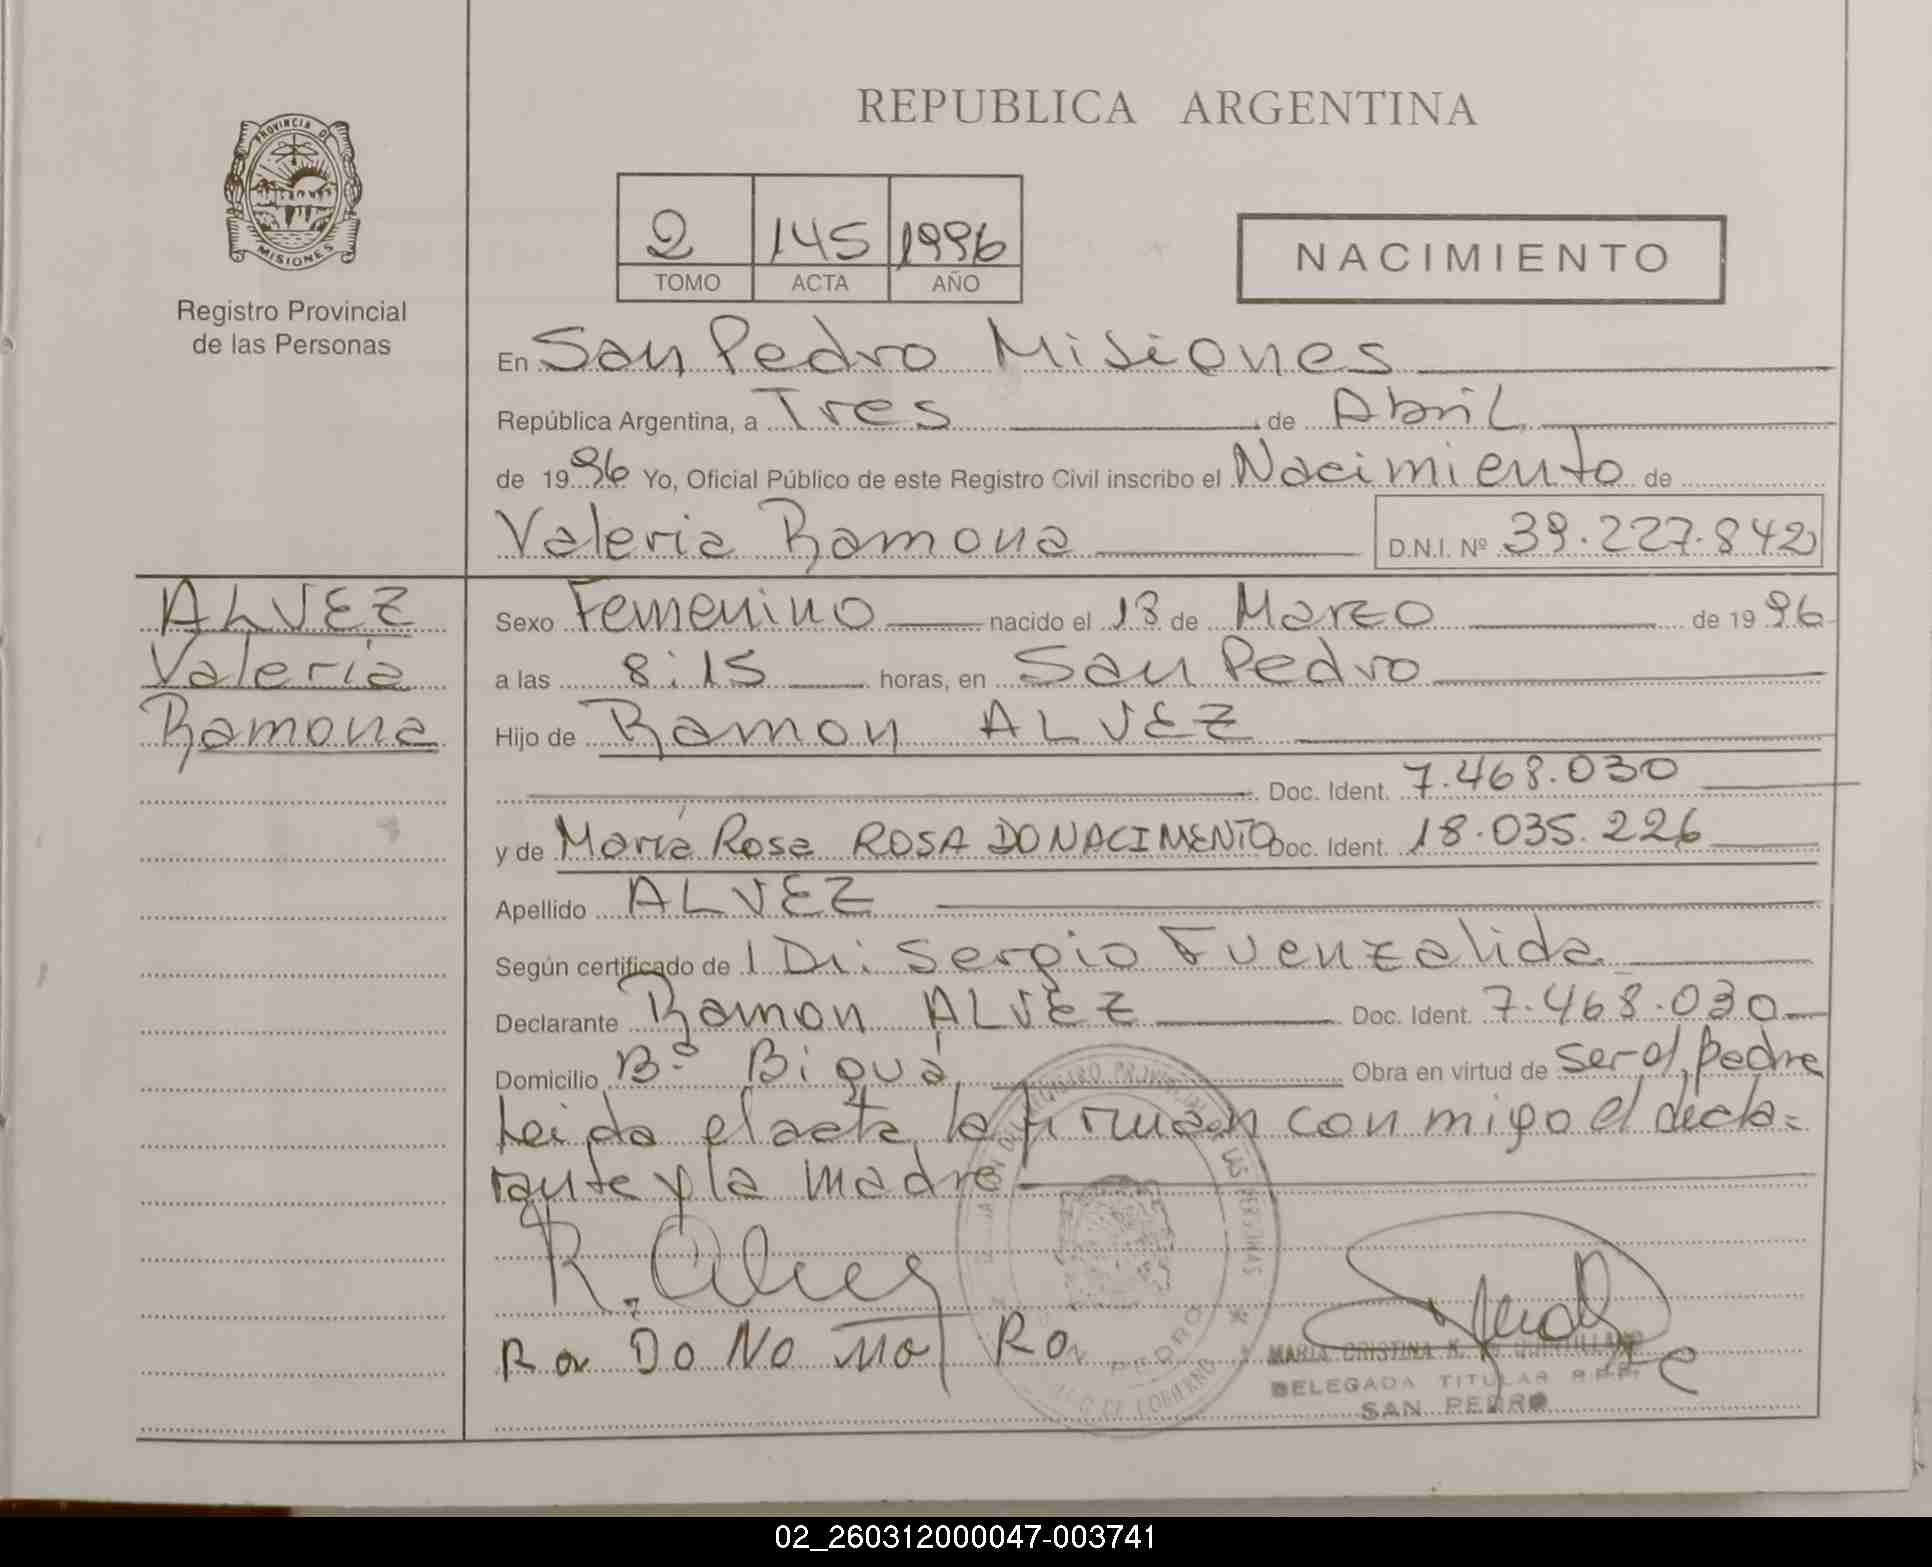 REPUBLICA ARGENTINA
PROVINCIA DE
MISIONES
Registro Provincial
de las Personas
2 145 1996
TOMO ACTA AÑO
NACIMIENTO
En San Pedro Misiones
República Argentina, a Tres de Abril
de 1996 Yo, Oficial Público de este Registro Civil inscribo el Nacimiento de
Valeria Ramona D.N.I. Nº 39.227.842
ALVEZ
Valeria
Ramona
Sexo Femenino nacido el 13 de Marzo de 1996
a las 8:15 horas, en San Pedro
Hijo de Ramon ALVEZ
Doc. Ident. 7.468.030
y de María Rosa ROSA DO NACIMENTO Doc. Ident. 18.035.226
Apellido ALVEZ
Según certificado de Dr: Sergio Fuenzalida
Declarante Ramon ALVEZ Doc. Ident. 7.468.030
Domicilio Bº Biguá Obra en virtud de ser el padre
Leida el acta la firman con migo el decla=
rante y la madre
R. Alvez
MARIA CRISTINA
DELEGADA TITULAR R.P.P.
SAN PEDRO
02_260312000047-003741